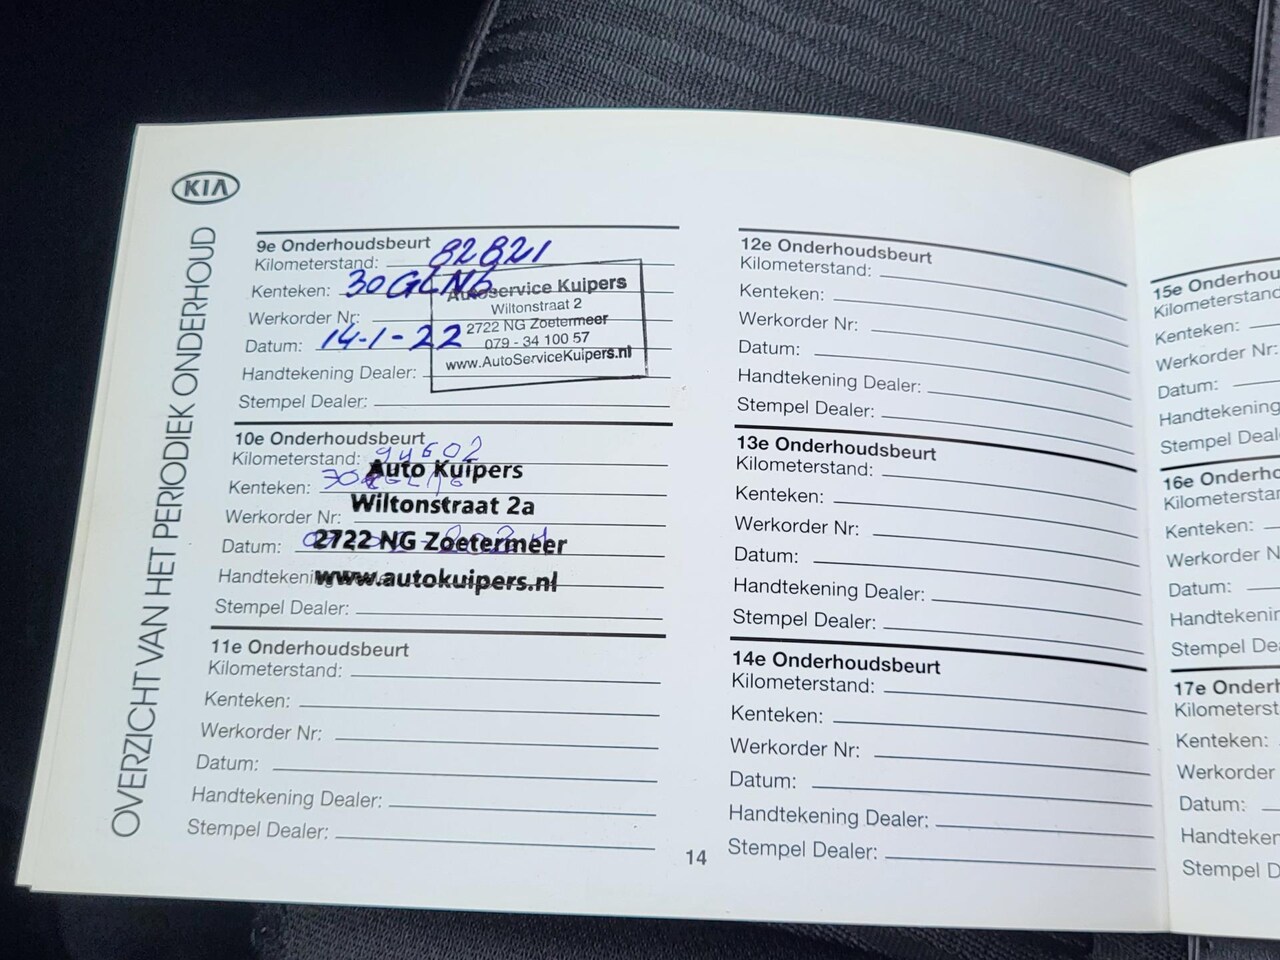 KIA
OVERZICHT VAN HET PERIODIEK ONDERHOUD
9e Onderhoudsbeurt
Kilometerstand: 82821
Kenteken: 30GLN6
Werkorder Nr:
Datum: 14-1-22
Handtekening Dealer:
Stempel Dealer:
Autoservice Kuipers
Wiltonstraat 2
2722 NG Zoetermeer
079 - 34 100 57
www.AutoServiceKuipers.nl
10e Onderhoudsbeurt
Kilometerstand: 94602
Kenteken:
Werkorder Nr:
Datum:
Handtekening
Stempel Dealer:
Auto Kuipers
Wiltonstraat 2a
2722 NG Zoetermeer
www.autokuipers.nl
11e Onderhoudsbeurt
Kilometerstand:
Kenteken:
Werkorder Nr:
Datum:
Handtekening Dealer:
Stempel Dealer:
12e Onderhoudsbeurt
Kilometerstand:
Kenteken:
Werkorder Nr:
Datum:
Handtekening Dealer:
Stempel Dealer:
13e Onderhoudsbeurt
Kilometerstand:
Kenteken:
Werkorder Nr:
Datum:
Handtekening Dealer:
Stempel Dealer:
14e Onderhoudsbeurt
Kilometerstand:
Kenteken:
Werkorder Nr:
Datum:
Handtekening Dealer:
Stempel Dealer:
14
15e Onderhou
Kilometerstand
Kenteken:
Werkorder Nr:
Datum:
Handtekening
Stempel Deal
16e Onderho
Kilometerstan
Kenteken:
Werkorder N
Datum:
Handtekenin
Stempel De
17e Onder
Kilometerst
Kenteken:
Werkorder
Datum:
Handteker
Stempel D